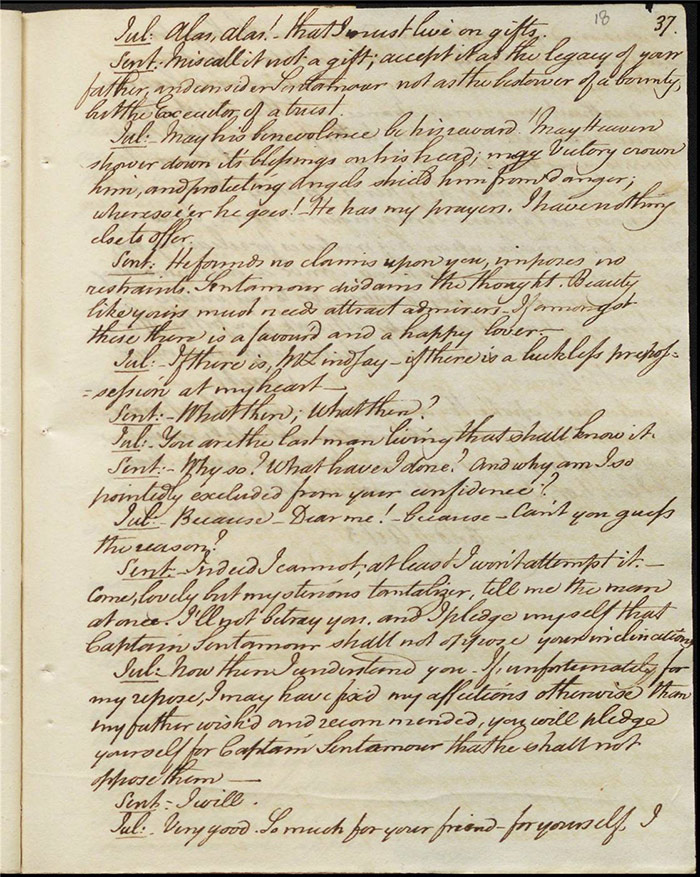 18 37.
Jul: Alas, alas! - that I must live on gifts.
Sent: Miscall it not a gift; accept it as the legacy of your
father, and consider Sentamour not as the bestower of a bounty,
but the Executor of a trust.
Jul: - May his benevolence be his reward! May Heaven
shower down it's blessings on his head; may Victory crown
him, and protecting angels shield him from danger;
wheresoe'er he goes! - He has my prayers. I have nothing
else to offer.
Sent: He founds no claims upon you, imposes no
restraints. Sentamour disdains the thought. Beauty
like yours must needs attract admirers - If amongst
these there is a favourd and a happy lover. -
Jul: - If there is, Mr. Lindsay - if there is a luckless prepos-
=session at my heart -
Sent: - What then; What then?
Jul: - You are the last man living that shall know it.
Sent: - Why so? What have I done? And why am I so
pointedly excluded from your confidence?
Jul: - Because - Dear me! - because - Can't you guess
the reason?
Sent: - Indeed I cannot, at least I won't attempt it. -
Come, lovely but mysterious tantalizer, tell me the man
at once. I'll not betray you. and I pledge myself that
Captain Sentamour shall not oppose your inclinations
Jul: Now then I understand you - If, unfortunately for
my repose, I may have fix'd my affections otherwise than
my father wish'd and recommended, you will pledge
yourself for Captain Sentamour that he shall not
oppose them —
Sent: - I will.
Jul: - Very good. So much for your friend - for yourself, I